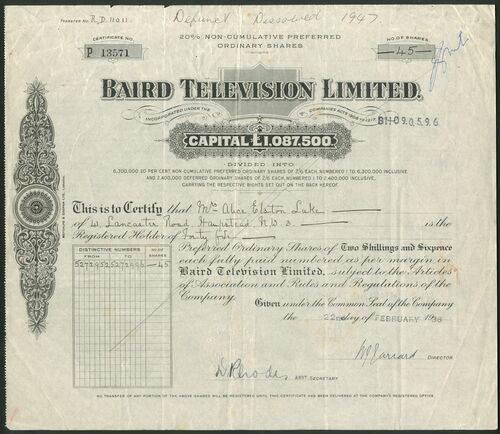 TRANSFER No R.D. 11011.
Defunct Dissolved 1947
CERTIFICATE No.
P 13571
20% NON-CUMULATIVE PREFERRED
ORDINARY SHARES
No. OF SHARES.
—45—
BAIRD TELEVISION LIMITED.
INCORPORATED UNDER THE
COMPANIES ACTS 1908 TO 1917.
BH09.05.96
CAPITAL £1,087,500
DIVIDED INTO
6,300,000 20 PER CENT NON-CUMULATIVE PREFERRED ORDINARY SHARES OF 2/6 EACH, NUMBERED 1 TO 6,300,000 INCLUSIVE
AND 2,400,000 DEFERRED ORDINARY SHARES OF 2/6 EACH, NUMBERED 1 TO 2,400,000 INCLUSIVE,
CARRYING THE RESPECTIVE RIGHTS SET OUT ON THE BACK HEREOF.
This is to Certify that Mrs Alice Elston Lake
of 10, Lancaster Road Hampstead N.W.3. is the
Registered Holder of Forty five
Preferred Ordinary Shares of Two Shillings and Sixpence
each fully paid numbered as per margin in
Baird Television Limited, subject to the Articles
of Association and Rules and Regulations of the
Company.
DISTINCTIVE NUMBERS
No OF SHARES
FROM TO
5272952 5272996 —45
Given under the Common Seal of the Company
the 22nd day of FEBRUARY 1936
DIRECTOR
D Rhodes ASST. SECRETARY
NO TRANSFER OF ANY PORTION OF THE ABOVE SHARES WILL BE REGISTERED UNTIL THIS CERTIFICATE HAS BEEN DELIVERED AT THE COMPANY'S REGISTERED OFFICE